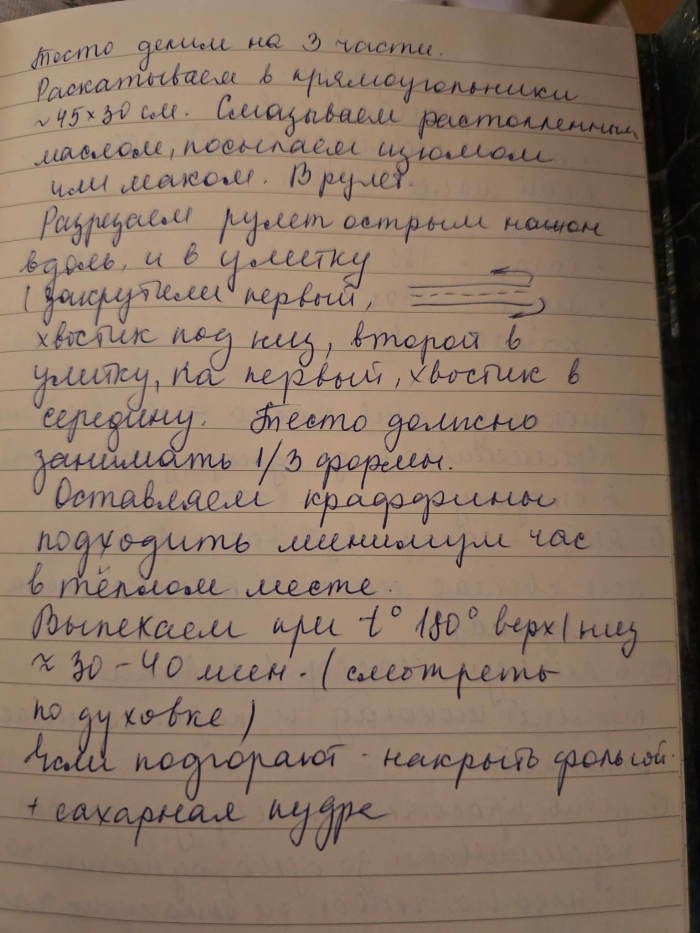 Тесто делим на 3 части.
Раскатываем в прямоугольники
~45×30 см. Смазываем растопленным
маслом, посыпаем изюмом
или маком. В рулет.
Разрезаем рулет острым ножом
вдоль, и в улитку
(закрутили первый,
хвостик под низ, второй в
улитку, на первый, хвостик в
середину. Тесто должно
занимать 1/3 формы.
Оставляем краффины
подходить минимум час
в тёплом месте.
Выпекаем при t° 180° верх/низ
≈ 30-40 мин. (смотреть
по духовке)
Если подгорают - накрыть фольгой.
+ сахарная пудра